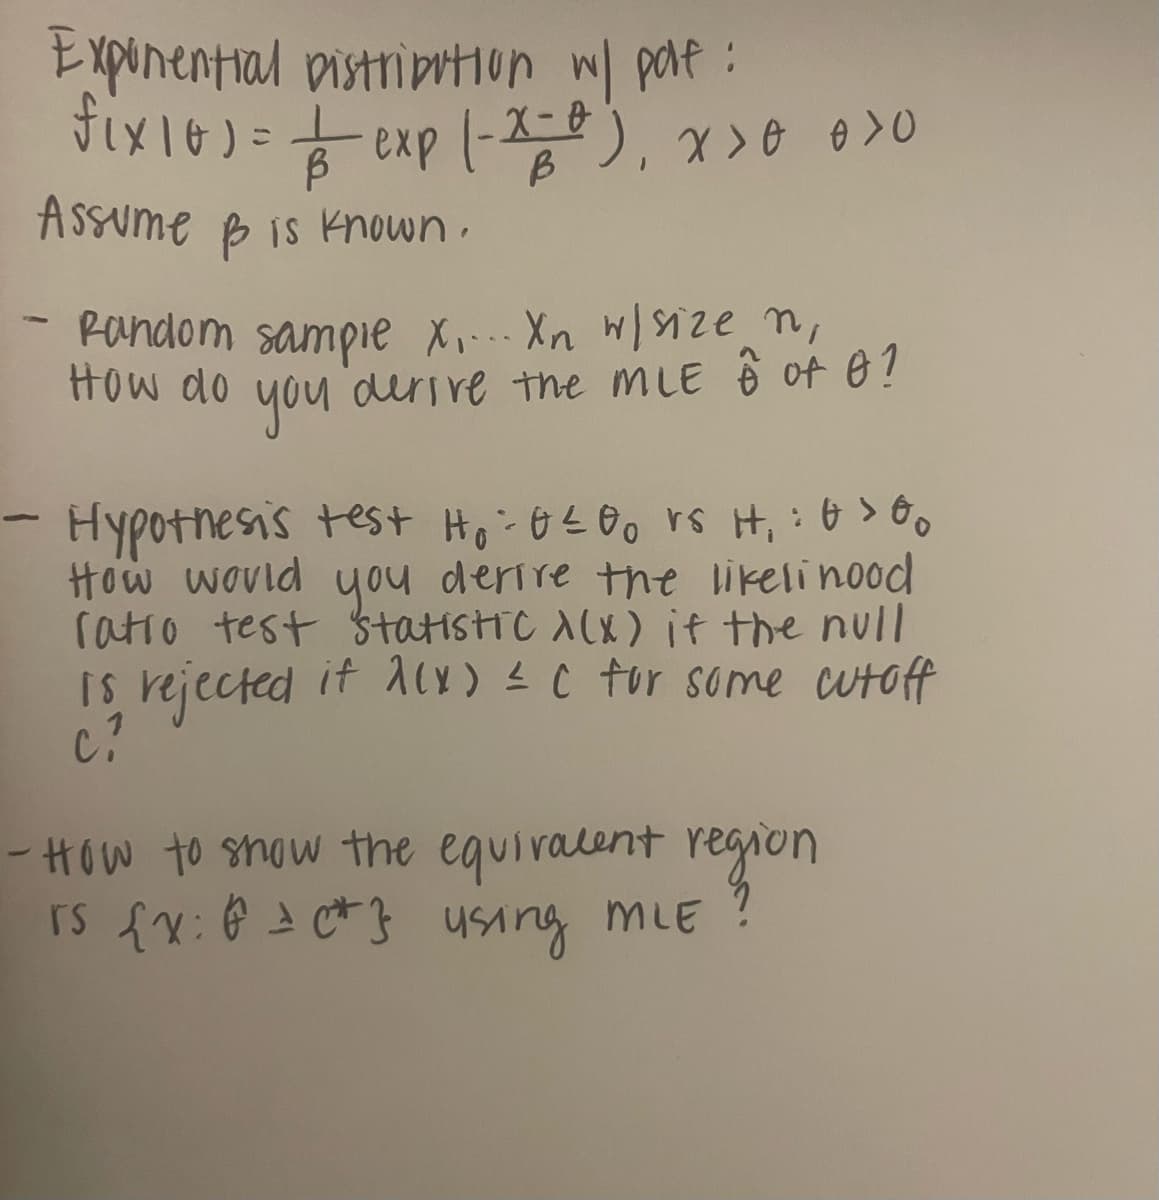 Exponential Distribution w/ pdf :
f(x|θ) = 1/β exp (-x-θ/β), x>θ θ>0
Assume β is known.
- Random sample X₁... Xn w/ size n,
How do you derive the MLE θ̂ of θ?
- Hypothesis test H₀: θ≤θ₀ vs H₁: θ>θ₀
How would you derive the likelihood
ratio test statistic λ(x) if the null
is rejected if λ(x) ≤ c for some cutoff
c?
- How to show the equivalent region
is {x: θ̂ ≥ c*} using MLE ?